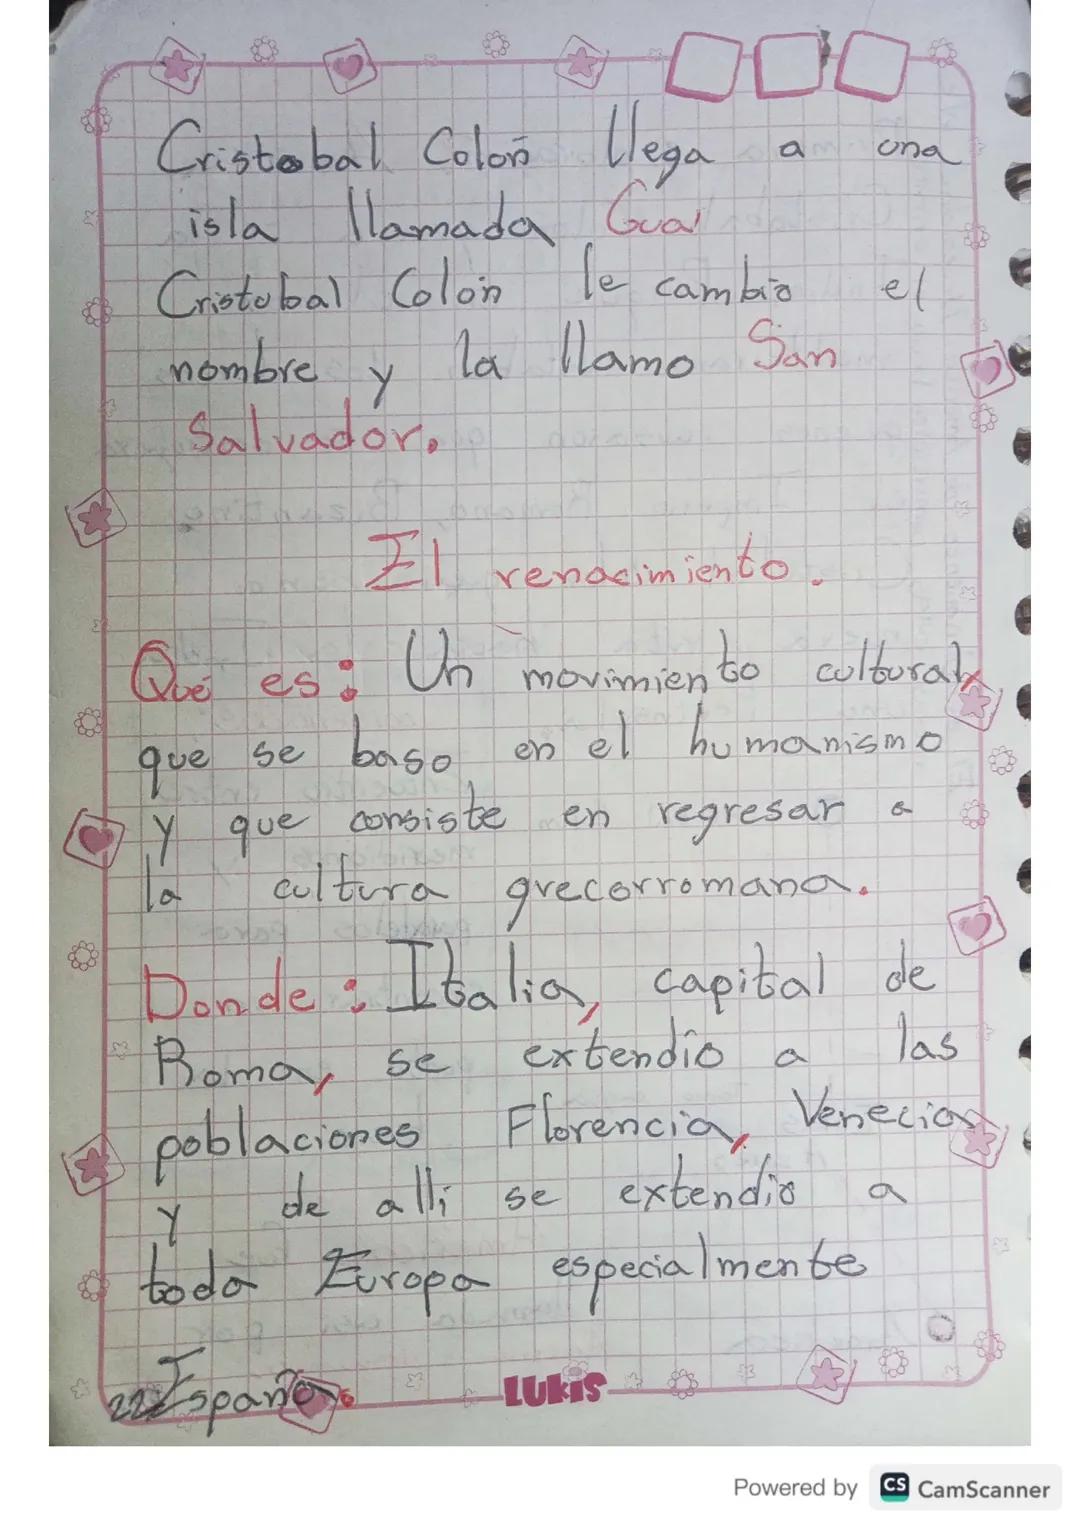 Cristobal Colon llega a una
isla llamada Guai
Cristobal Colón le cambio el
nombre y la llamo San
Salvador.
El renacimiento.
Qué es: Un movimiento cultural,
que se baso en el humanismo
y que consiste en regresar a
la cultura grecorromana.
Donde: Italia, capital de
Roma, se extendio a las
poblaciones Florencia, Venecia,
y de alli se extendio a
toda Europa especialmente
España.
LUKIS
Powered by CS CamScanner